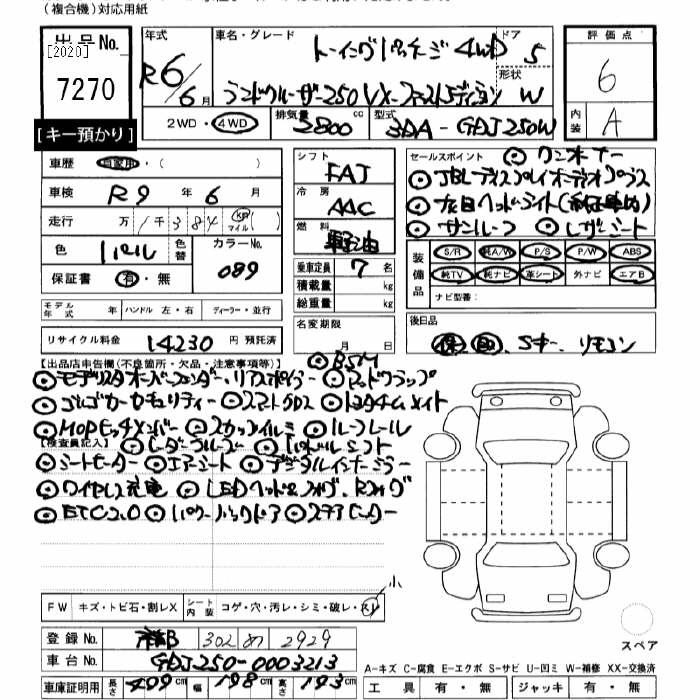 (複合機)対応用紙
出品No.
[2020]
7270
[キー預かり]
年式
R6/6月
車名・グレード
トーイングパッケージ 4WD
ランドクルーザー250 VX ファーストエディション
ドア
5
形状
W
2WD・4WD
排気量
2800cc
型式
3DA-GDJ250W
評価点
6
内装
A
車歴 自家用・( )
車検 R9年6月
走行 万1千384km マイル( )
色 パール
色替
カラーNo. 089
保証書 有・無
モデル年式 年 ハンドル 左・右 ディーラー・並行
リサイクル料金 14230円 預託済
シフト
FAT
冷房
AAC
燃料
軽油
乗車定員 7名
積載量 kg
総重量 kg
名変期限
月 日
セールスポイント ◎ワンオーナー
◎JBLディスプレイオーディオプラス
◎丸目ヘッドライト(純正車内)
◎サンルーフ ◎レザーシート
装備品
S/R 純A/W P/S P/W ABS
純TV 純ナビ 革シート 外ナビ エアB
ナビ型番:
後日品
保 取 、Sキー、リモコン
【出品店申告欄(不良箇所・欠品・注意事項等)】
◎BSM
◎モデリスタオーバーフェンダー、リアスポイラー ◎マッドフラップ
◎ゴルゴカーセキュリティー ◎スマートクロス ◎トヨタチームメイト
◎MOPヒッチメンバー ◎スカッフイルミ ◎ルーフレール
【検査員記入】
◎レーダークルーズ ◎パドルシフト
◎シートヒーター ◎エアーシート ◎デジタルインナーミラー
◎ワイヤレス充電 ◎LEDヘッド&フォグ、Rフォグ
◎ETC2.0 ◎パワーバックドア ◎ステアヒーター
小
FW キズ・トビ石・割レX シート内装 コゲ・穴・汚レ・シミ・破レ・スレ
登録No. 302 め 2929
車台No. GDJ250-0003213
車庫証明用 長さ 499cm 幅 198cm 高さ 193cm
スペア
A-キズ C-腐食 E-エクボ S-サビ U-凹ミ W-補修 XX-交換済
工具 有・無 ジャッキ 有・無